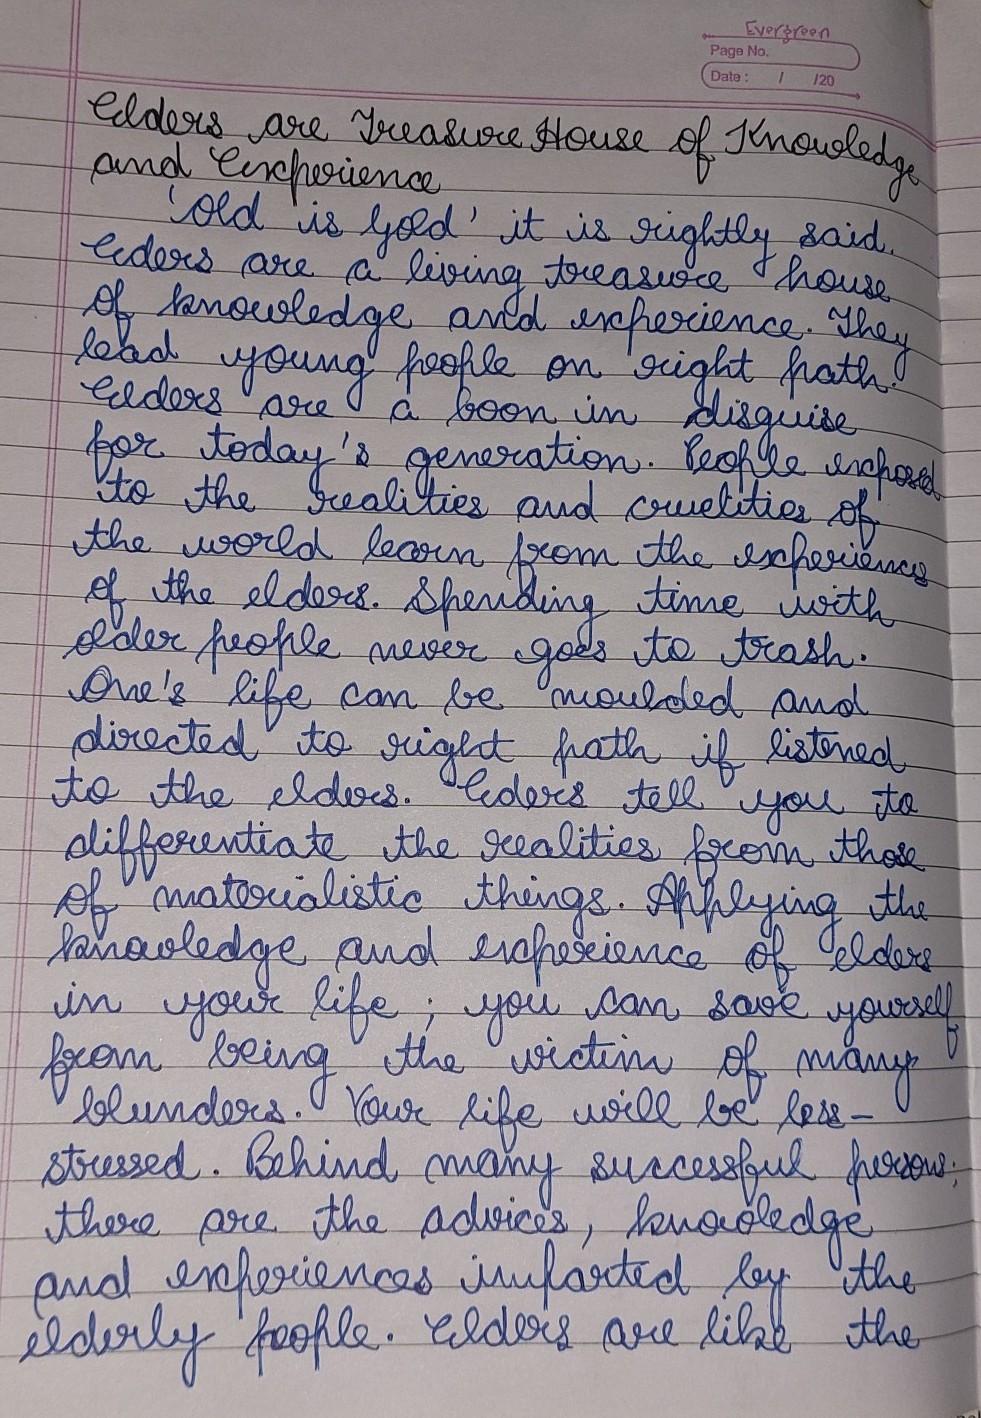 Evergreen
Page No.
Date : / /20
Elders are Treasure House of Knowledge
and Experience
'Old is Gold' it is rightly said.
Elders are a living treasure house
of knowledge and experience. They
lead young people on right path.
Elders are a boon in disguise
for today's generation. People exposed
to the realities and cruelities of
the world learn from the experiences
of the elders. Spending time with
older people never goes to trash.
One's life can be moulded and
directed to right path if listened
to the elders. Elders tell you to
differentiate the realities from those
of materialistic things. Applying the
knowledge and experience of elders
in your life ; you can save yourself
from being the victim of many
blunders. Your life will be less-
stressed. Behind many successful persons;
there are the advices, knowledge
and experiences imparted by the
elderly people. Elders are like the